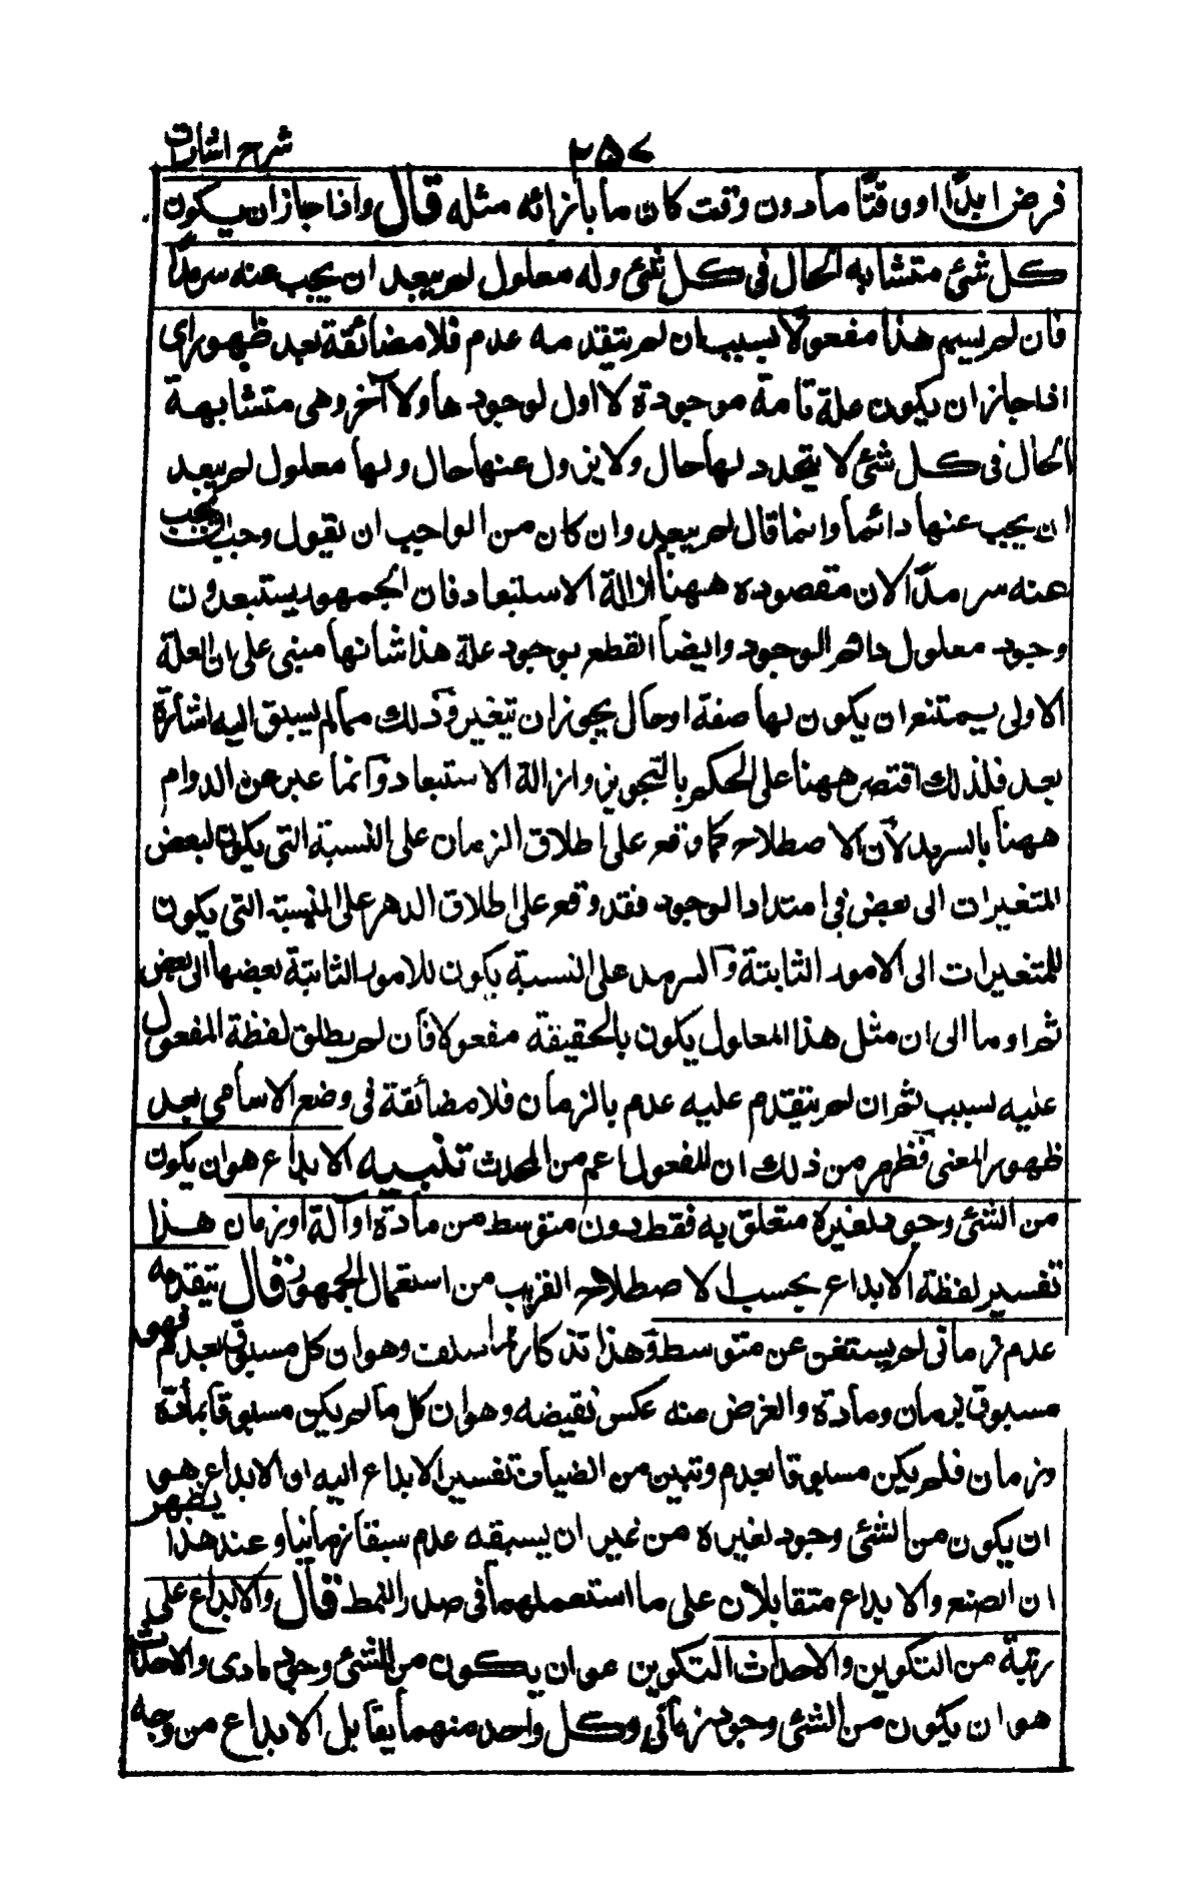 شرح اشارات
٢٥٧
فرض ابدًا او وقتًا ما دون وقت كان ما بازائه مثله قال واذا جاز ان يكون
كل شئ متشابه الحال فى كل شئ وله معلول لم يبعد ان يجب عنه سرمدًا
فان لم يسم هذا مفعولًا بسبب ان لم يتقدمه عدم فلا مضائقة بعد ظهور اى
اذا جاز ان يكون علة تامة موجودة لا اول لوجودها ولا آخر وهى متشابهة
الحال فى كل شئ لا يتجدد لها حال ولا يزول عنها حال ولها معلول لم يبعد
ان يجب عنها دائما وانما قال لم يبعد وان كان من الواجب ان يقول وجب ويجب
عنه سرمدًا لان مقصوده ههنا ازالة الاستبعاد فان الجمهور يستبعدون
وجود معلول دائم الوجود وايضا القطع بوجود علة هذا شانها مبنى على ان العلة
الاولى يمتنع ان يكون لها صفة او حال يجوز ان تتغير وذلك مما لم يسبق اليه اشارة
بعد فلذلك اقتصر ههنا على الحكم بالتجويز وازالة الاستبعاد وانما عبر عن الدوام
ههنا بالسرمد لان الاصطلاح كما وقع على اطلاق الزمان على النسبة التى يكون لبعض
المتغيرات الى بعض فى امتداد الوجود فقد وقع على اطلاق الدهر على النسبة التى يكون
للمتغيرات الى الامور الثابتة والسرمد على النسبة يكون للامور الثابتة بعضها الى بعض
ثم اوما الى ان مثل هذا المعلول يكون بالحقيقة مفعولا فان لم يطلق لفظة المفعول
عليه بسبب ثم ان لم يتقدم عليه عدم بالزمان فلا مضائقة فى وضع الاسامى بعد
ظهور المعنى فظهر من ذلك ان المفعول اعم من المحدث تنبيه الابداع هو ان يكون
من الشئ وجود لغيره متعلق به فقط دون متوسط من مادة او آلة او زمان هذا
تفسير لفظة الابداع بحسب الاصطلاح القريب من استعمال الجمهور قال يتقدمه
عدم زمانى لم يستغن عن متوسط وهذا تذكار لما سلف وهو ان كل مسبوق بعدم فهو
مسبوق بزمان ومادة والغرض منه عكس نقيضه وهو ان كل ما لم يكن مسبوقا بمادة
وزمان فلم يكن مسبوقا بعدم وتبين من انضياف تفسير الابداع اليه ان الابداع هو
ان يكون من الشئ وجود لغيره من غير ان يسبقه عدم سبقا زمانيا وعند هذا يظهر
ان الصنع والابداع متقابلان على ما استعملهما فى صدر النمط قال والابداع على
رتبة من التكوين والاحداث التكوين هو ان يكون من الشئ وجود مادى والاحداث
هو ان يكون من الشئ وجود زمانى وكل واحد منهما يقابل الابداع من وجه